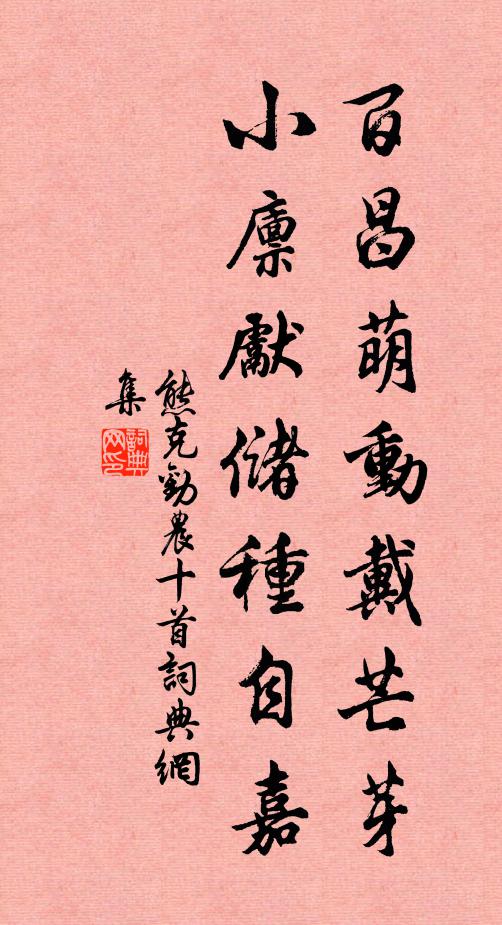 百昌萌動戴芒芽
小廩獻儲種自嘉
熊克勸農十首詞典網
集
詞典
网印